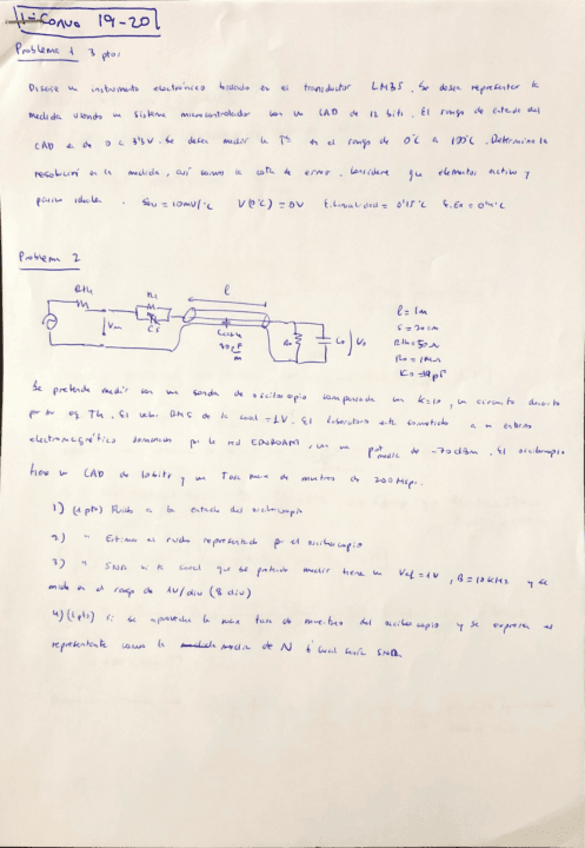 1ª Convo 19-20
Problema 1 3 ptos
Diseñe un instrumento electrónico basado en el transductor LM35. Se desea representar la
medida usando un sistema microcontrolador con un CAD de 12 bits. El rango de entrada del
CAD es de 0 a 3'3V. Se desea medir la Tª en el rango de 0ºC a 100ºC. Determine la
resolución en la medida, así como la cota de error. Considere que elementos activos y
pasivos ideales. Sen = 10mV/ºC V(0ºC) = 0V E.Linealidad = 0'15ºC
Problema 2
Rth
Vm
R1
Cs
l
Ccoax
Ro
Co
Vo
l = 1m
Rth = 50Ω
Ro = 1MΩ
Se pretende medir con una sonda de osciloscopio compensada con K=10, un circuito descrito
por su eq Th. El valor RMS de la señal = 1V. El laboratorio está sometado a un entorno
electromagnético dominado por la red EDUROAM, con una pot media de -70dBm. El osciloscopio
tiene un CAD de 10bits y una Tasa max de muestreo de 200Msps.
1) (1 pto) Ruido a la entrada del osciloscopio
2) " Estimar el ruido representado por el osciloscopio
3) " SNR si la señal que se pretende medir tiene un Vef = 1V, B = 10KHz y se
mide en el rango de 1V/div (8 div)
4) (1 pto) si se aprovecha la max tasa de muestreo del osciloscopio y se expresa el
representante como la media de N ¿Cual sería SNR